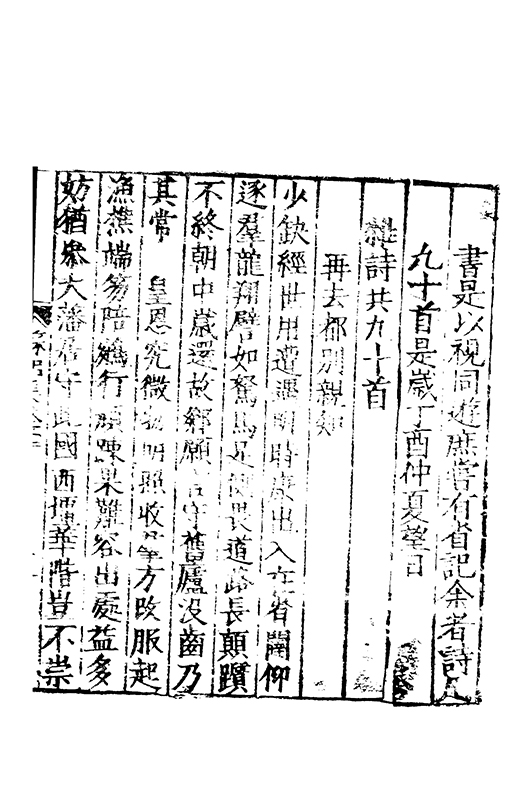 書是以視同遊庶嘗有省記余者詩凡
九十首是歲丁酉仲夏望日
雜詩共九十首
再去都別親知
少缺經世用遭遇明時康出入在省闈仰
逐羣龍翔譬如駑馬足側畏道路長顛躓
不終朝中歲還故鄉願言守舊廬沒齒乃
其常 皇恩究微物明照收 方改服起
漁樵端笏陪鵷行 踈果難容出處益多
妨猶叅大藩居守 國西壇華階豈不崇